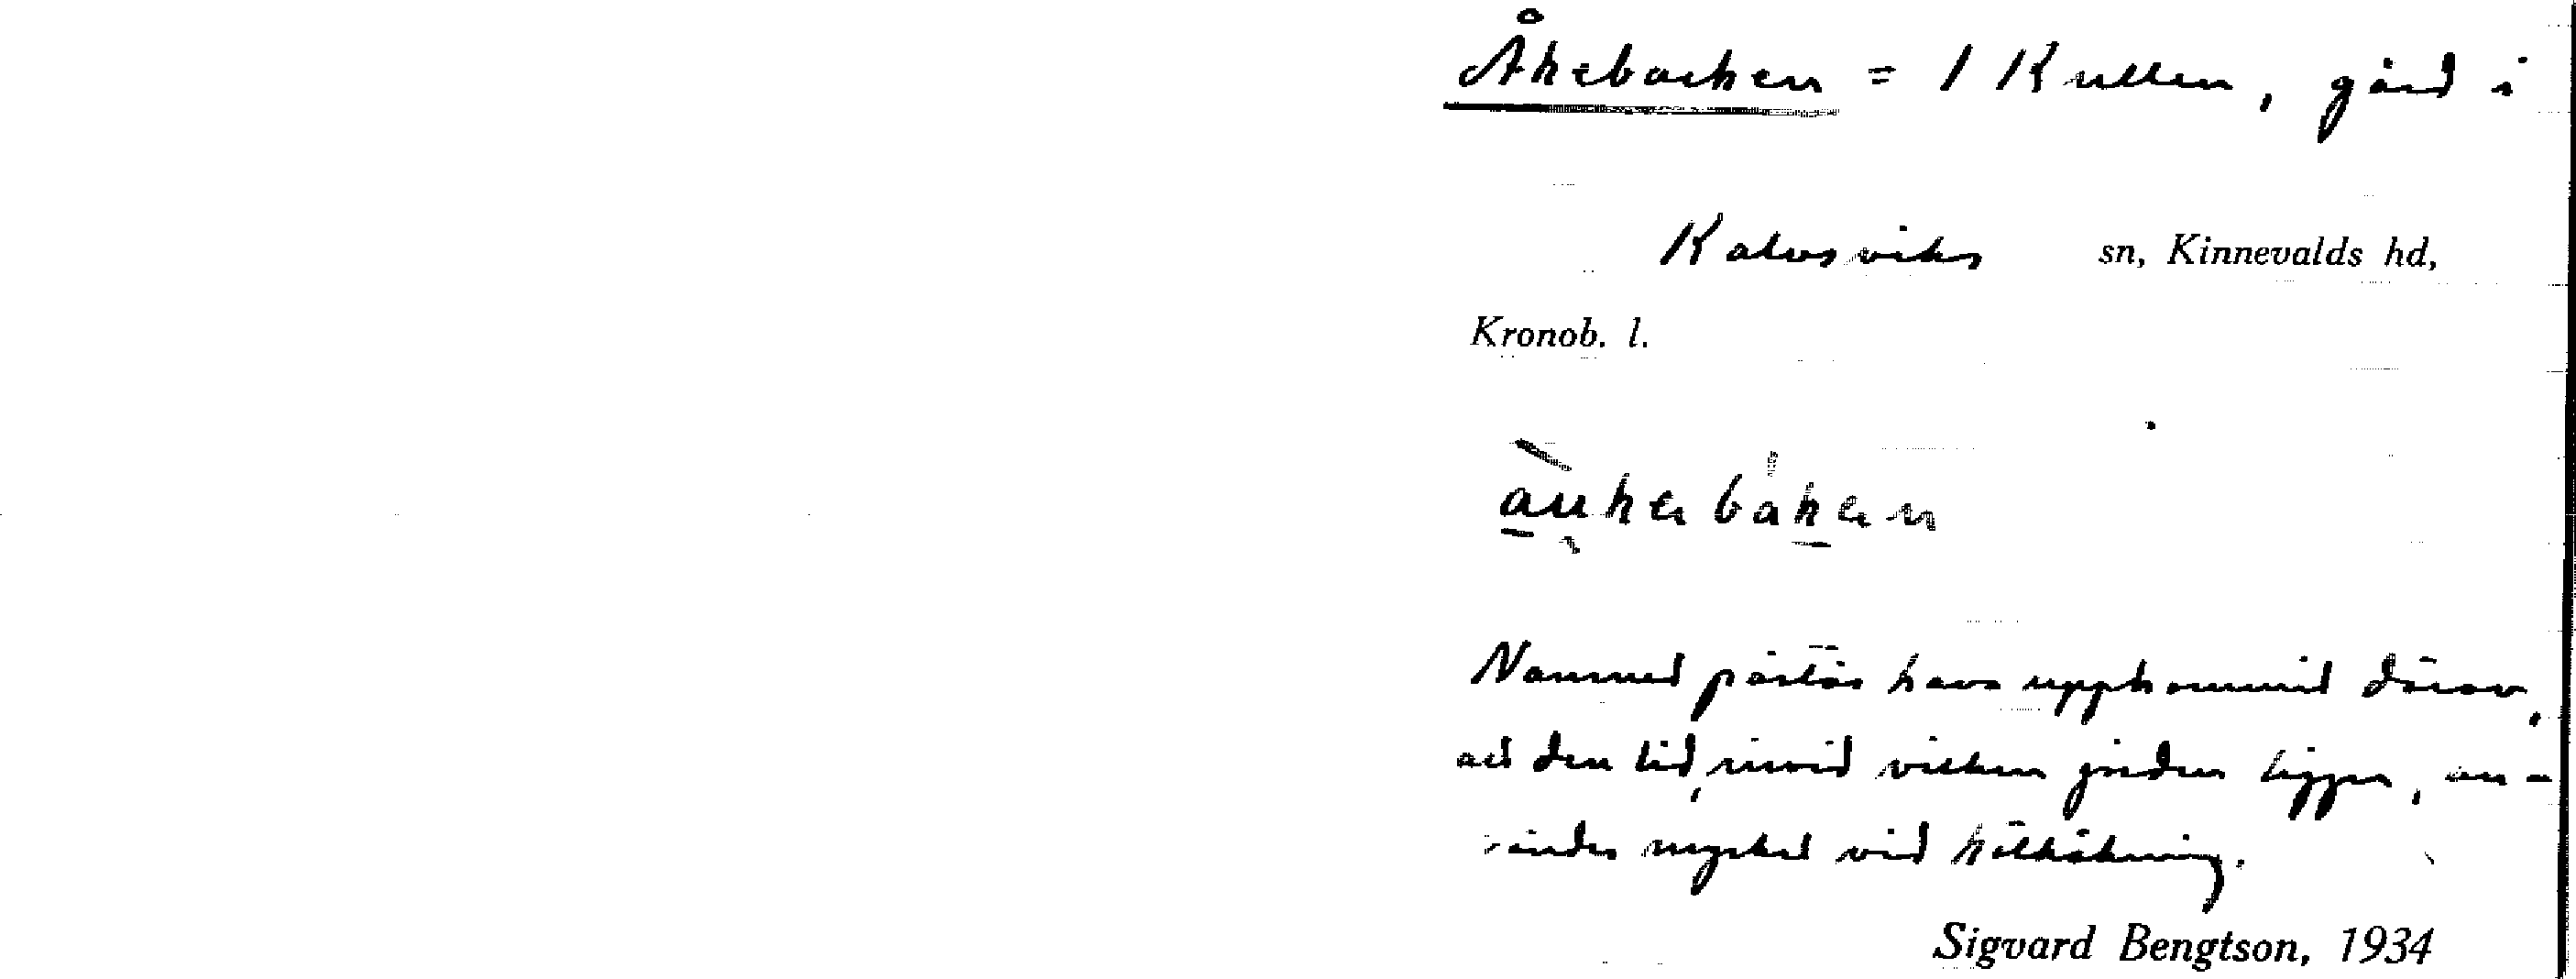 Åkebacken = 1 Kullen, gård i
Kalvsviks sn, Kinnevalds hd,
Kronob. l.
Namnet påstås hava uppkommit därav,
att den lid, invid vilken gården ligger, an-
vändes mycket vid kälkåkning.
Sigvard Bengtson, 1934